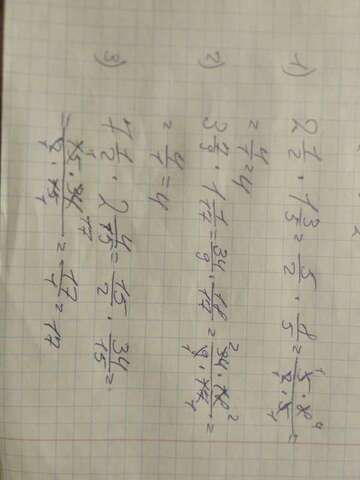 1) 2 1/2 · 1 3/5 = 5/2 · 8/5 = 5 · 8 / 2 · 5 =
= 4/1 = 4
2) 3 7/9 · 1 1/17 = 34/9 · 18/17 = 34 · 18 / 9 · 17 =
= 4/1 = 4
3) 7 1/2 · 2 4/15 = 15/2 · 34/15 =
= 15 · 34 / 2 · 15 = 17/1 = 17